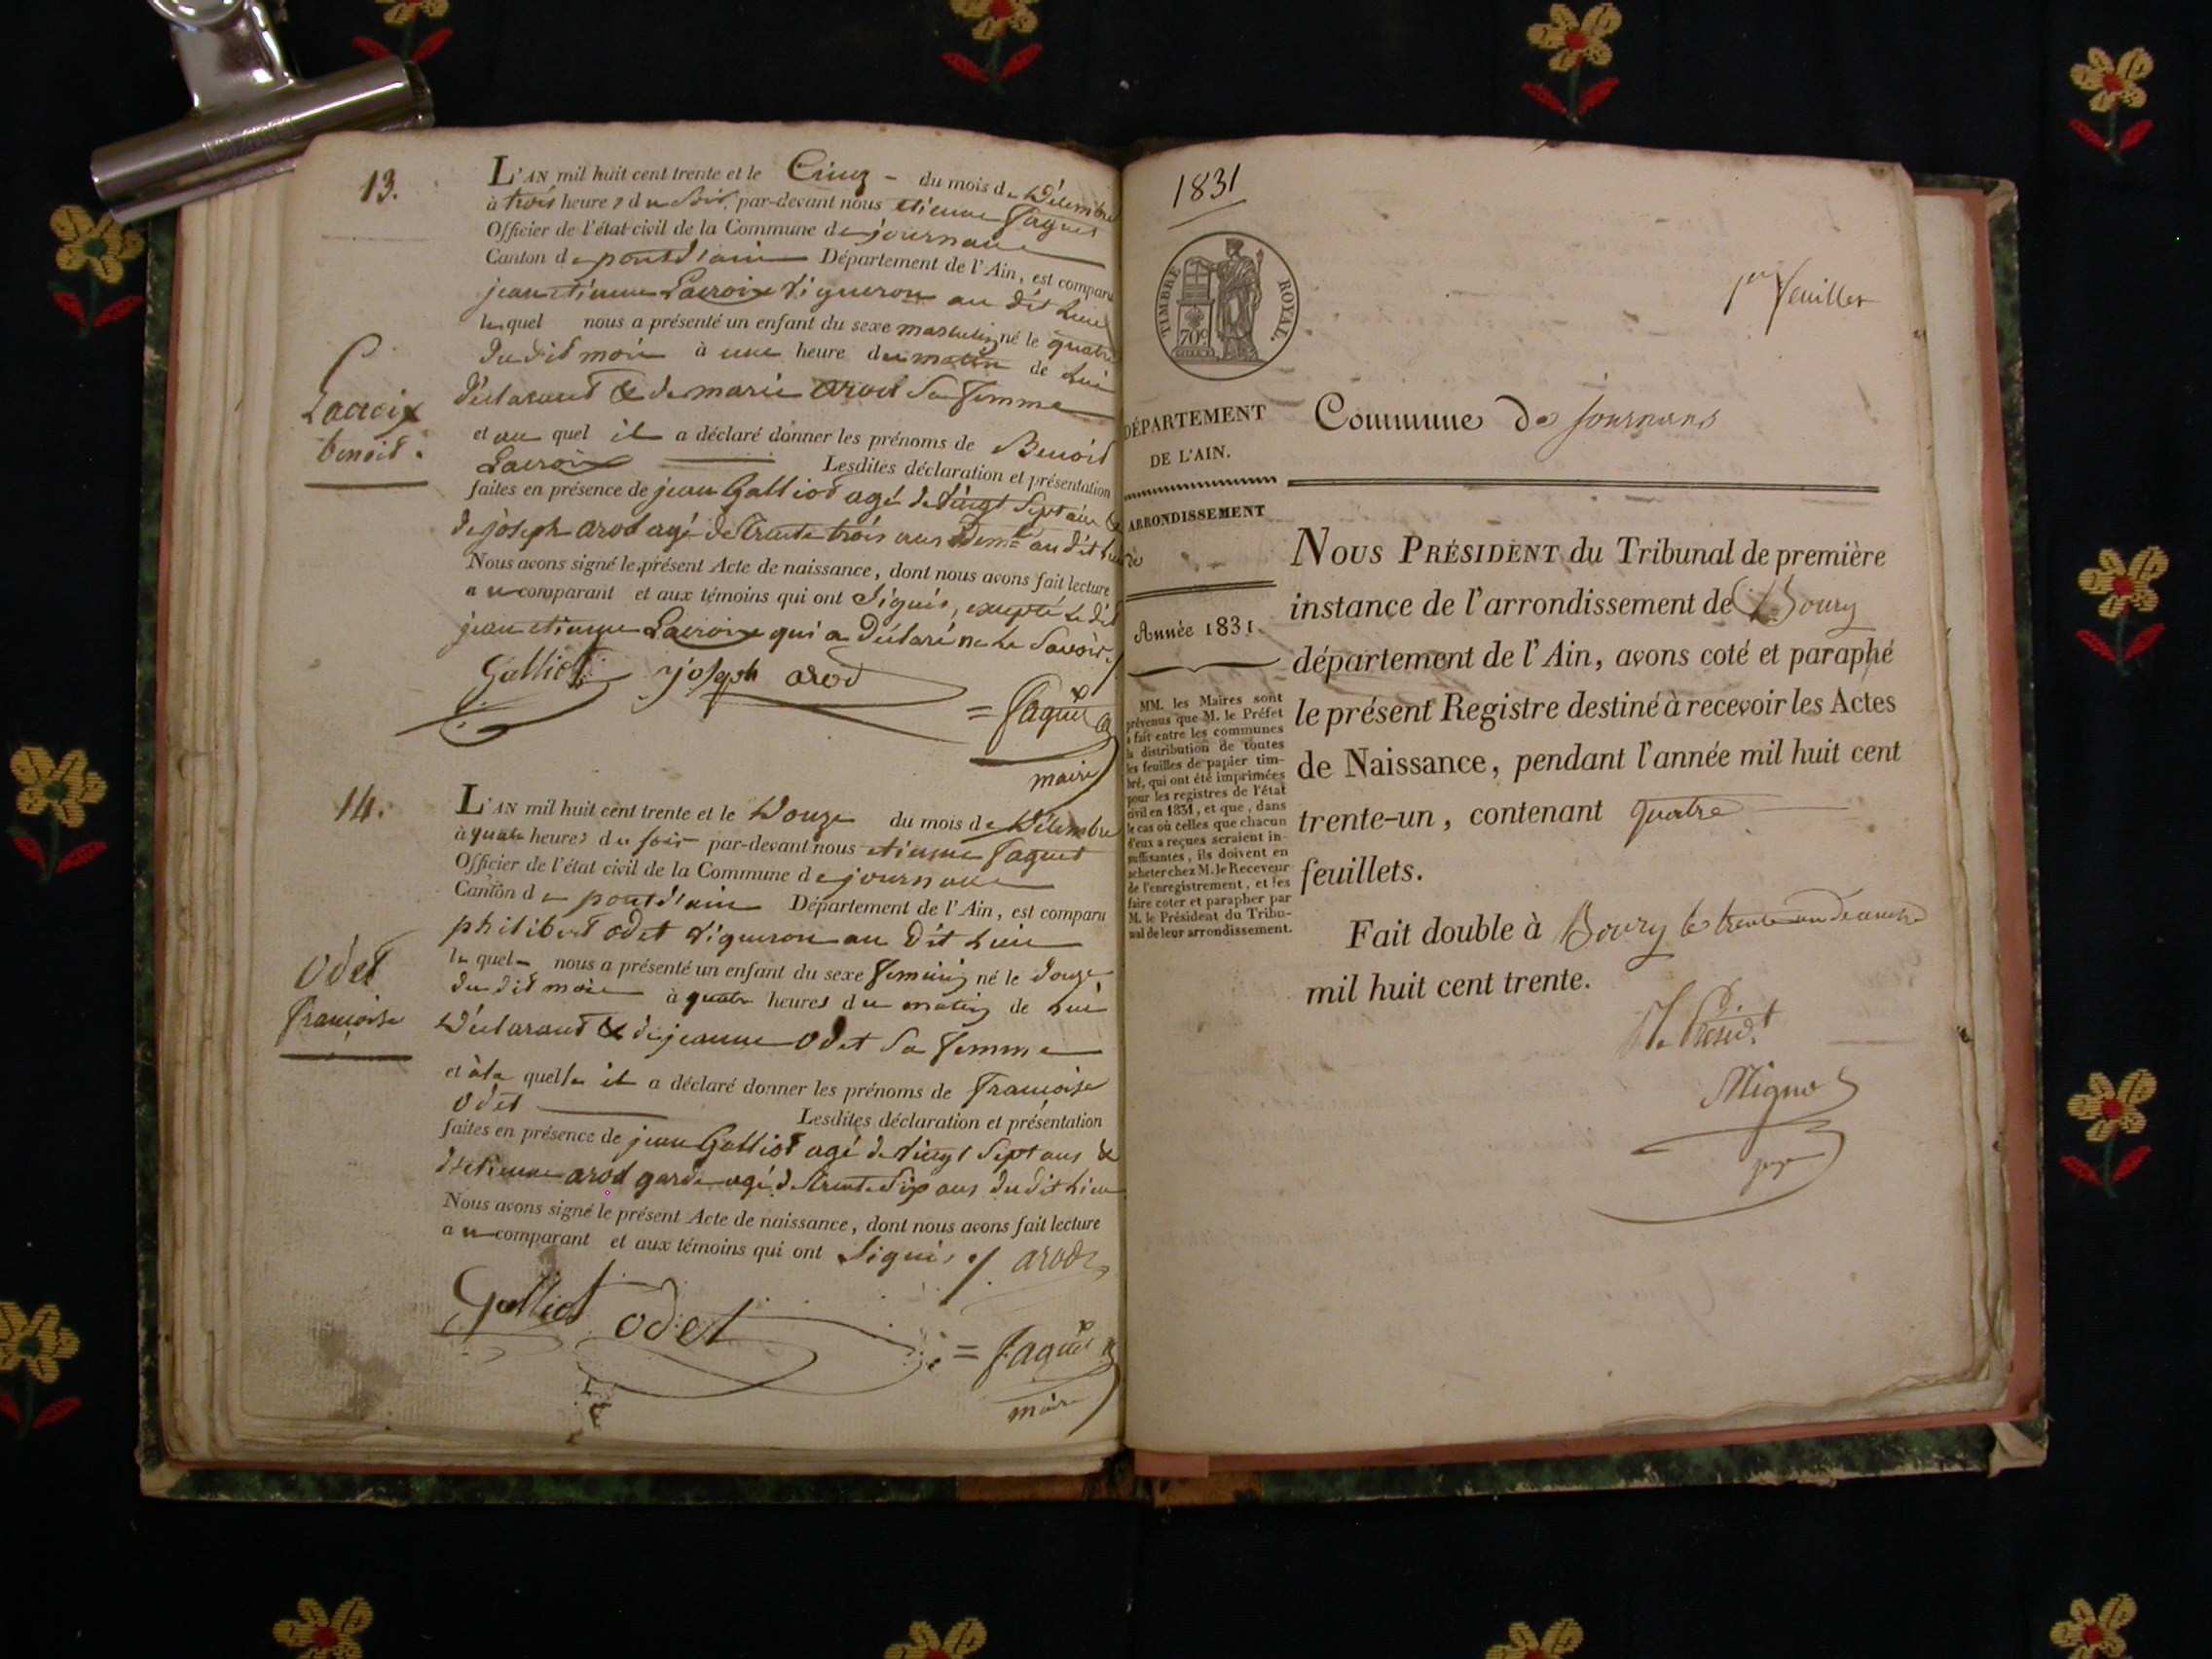 13.
L'AN mil huit cent trente et le Cinq - du mois de Décembre
à trois heures du Soir, par-devant nous etienne Faguet
Officier de l'état civil de la Commune de journans
Canton de pontd'ain Département de l'Ain, est comparu
jean etienne Lacroix vigneron au dit Lieu
lequel nous a présenté un enfant du sexe masculin né le quatre
du dit mois à une heure du matin de Lui
déclarant & de marie arod Sa femme
et au quel il a déclaré donner les prénoms de Benoit
Lacroix Lesdites déclaration et présentation
faites en présence de jean Galliot agé de vingt Sept ans &
de joseph arod agé de trente trois ans au dit Lieu
Nous avons signé le présent Acte de naissance, dont nous avons fait lecture
au comparant et aux témoins qui ont Signés, excepté Le dit
jean etienne Lacroix qui a Déclaré ne Le Savoir.
Lacroix
benoit.
Galliot joseph arod
= Faguet
maire
14.
L'AN mil huit cent trente et le Douze du mois de Décembre
à quatre heures du soir par-devant nous etienne Faguet
Officier de l'état civil de la Commune de journans
Canton de pontd'ain Département de l'Ain, est comparu
philibert odet vigneron au Dit Lieu
lequel nous a présenté un enfant du sexe feminin né le douze
du dit mois à quatre heures du matin de Lui
Déclarant & de jeanne Odet Sa femme
et à la quelle il a déclaré donner les prénoms de Françoise
Odet Lesdites déclaration et présentation
faites en présence de jean Galliot agé de vingt Sept ans &
d'etienne arod garde agé de trente Six ans du dit Lieu
Nous avons signé le présent Acte de naissance, dont nous avons fait lecture
au comparant et aux témoins qui ont Signés
Odet
françoise
arod
Galliot odet
= Faguet
maire
1831
TIMBRE ROYAL.
70c.
1er feuillet
DÉPARTEMENT
DE L'AIN.
ARRONDISSEMENT
de
Année 1831.
MM. les Maires sont
prévenus que M. le Préfet
a fait entre les communes
la distribution de toutes
les feuilles de papier tim-
bré, qui ont été imprimées
pour les registres de l'état
civil en 1831, et que, dans
le cas où celles que chacun
d'eux a reçues seraient in-
suffisantes, ils doivent en
acheter chez M. le Receveur
de l'enregistrement, et les
faire coter et parapher par
M. le Président du Tribu-
nal de leur arrondissement.
Commune de Journans
NOUS PRÉSIDENT du Tribunal de première
instance de l'arrondissement de Bourg
département de l'Ain, avons coté et paraphé
le présent Registre destiné à recevoir les Actes
de Naissance, pendant l'année mil huit cent
trente-un, contenant quatre
feuillets.
Fait double à Bourg le trente un décembre
mil huit cent trente.
juge